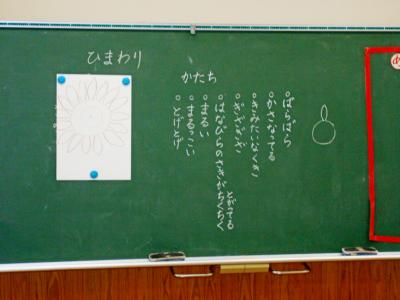 ひまわり
かたち
○ばらばら
○かさなってる
○きみたいなくき
○ぎざぎざ
○はなびらのさきがちくちく
とがってる
○まるい
○まるっこい
○とげとげ